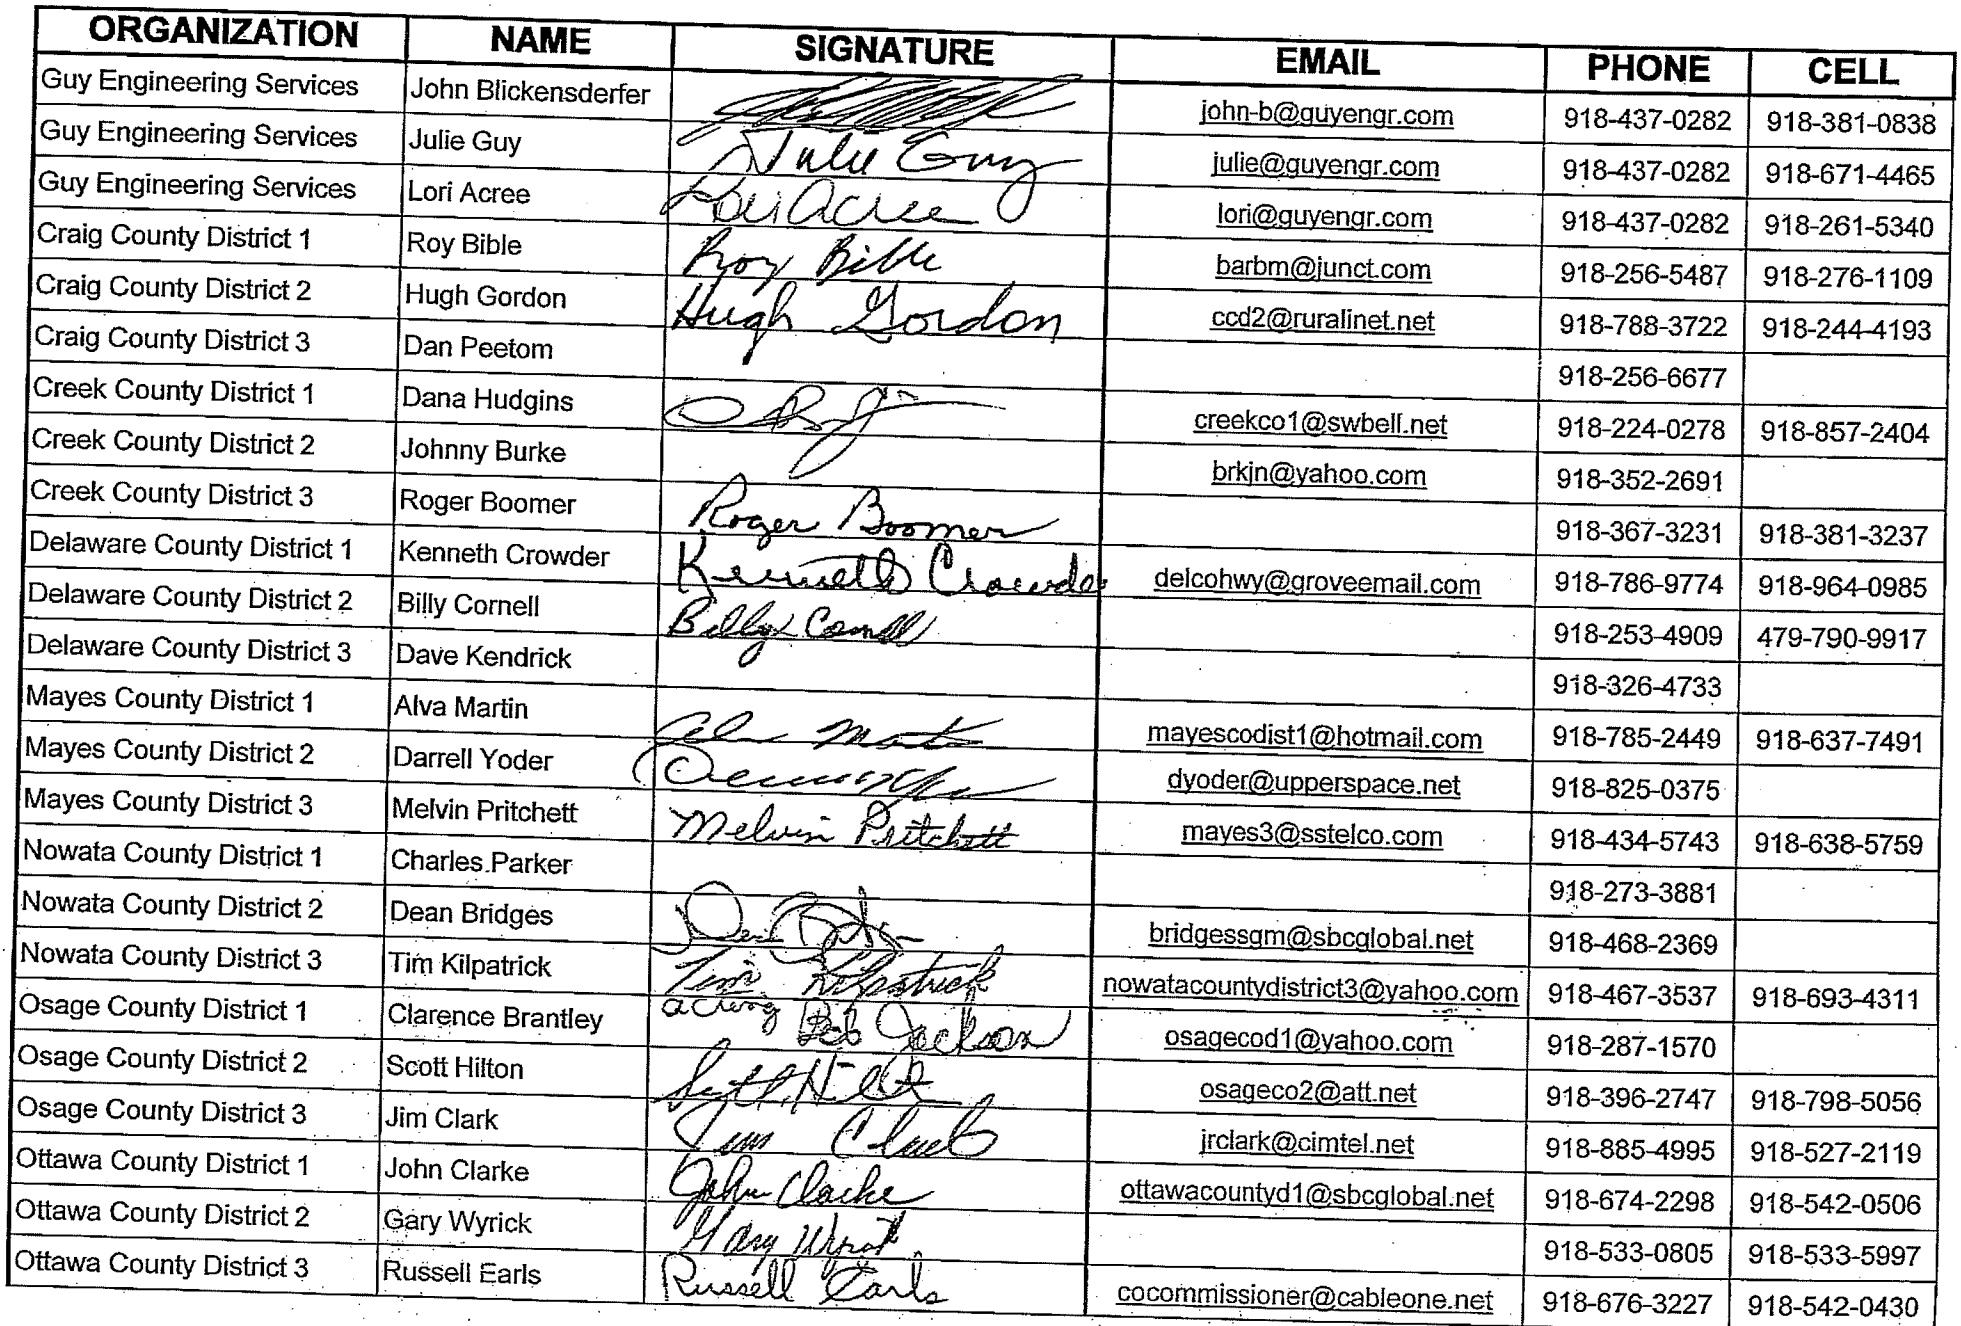 ORGANIZATION NAME SIGNATURE EMAIL PHONE CELL
Guy Engineering Services John Blickensderfer john-b@guyengr.com 918-437-0282 918-381-0838
Guy Engineering Services Julie Guy Julie Guy julie@guyengr.com 918-437-0282 918-671-4465
Guy Engineering Services Lori Acree Lori Acree lori@guyengr.com 918-437-0282 918-261-5340
Craig County District 1 Roy Bible Roy Bible barbm@junct.com 918-256-5487 918-276-1109
Craig County District 2 Hugh Gordon Hugh Gordon ccd2@ruralinet.net 918-788-3722 918-244-4193
Craig County District 3 Dan Peetom 918-256-6677
Creek County District 1 Dana Hudgins creekco1@swbell.net 918-224-0278 918-857-2404
Creek County District 2 Johnny Burke brkjn@yahoo.com 918-352-2691
Creek County District 3 Roger Boomer Roger Boomer 918-367-3231 918-381-3237
Delaware County District 1 Kenneth Crowder Kenneth Crowder delcohwy@groveemail.com 918-786-9774 918-964-0985
Delaware County District 2 Billy Cornell Billy Cornell 918-253-4909 479-790-9917
Delaware County District 3 Dave Kendrick 918-326-4733
Mayes County District 1 Alva Martin mayescodist1@hotmail.com 918-785-2449 918-637-7491
Mayes County District 2 Darrell Yoder dyoder@upperspace.net 918-825-0375
Mayes County District 3 Melvin Pritchett Melvin Pritchett mayes3@sstelco.com 918-434-5743 918-638-5759
Nowata County District 1 Charles.Parker 918-273-3881
Nowata County District 2 Dean Bridges bridgessgm@sbcglobal.net 918-468-2369
Nowata County District 3 Tim Kilpatrick Tim Kilpatrick nowatacountydistrict3@yahoo.com 918-467-3537 918-693-4311
Osage County District 1 Clarence Brantley acting Bob Jackson osagecod1@yahoo.com 918-287-1570
Osage County District 2 Scott Hilton Scott Hilton osageco2@att.net 918-396-2747 918-798-5056
Osage County District 3 Jim Clark Jim Clark jrclark@cimtel.net 918-885-4995 918-527-2119
Ottawa County District 1 John Clarke John Clarke ottawacountyd1@sbcglobal.net 918-674-2298 918-542-0506
Ottawa County District 2 Gary Wyrick Gary Wyrick 918-533-0805 918-533-5997
Ottawa County District 3 Russell Earls Russell Earls cocommissioner@cableone.net 918-676-3227 918-542-0430